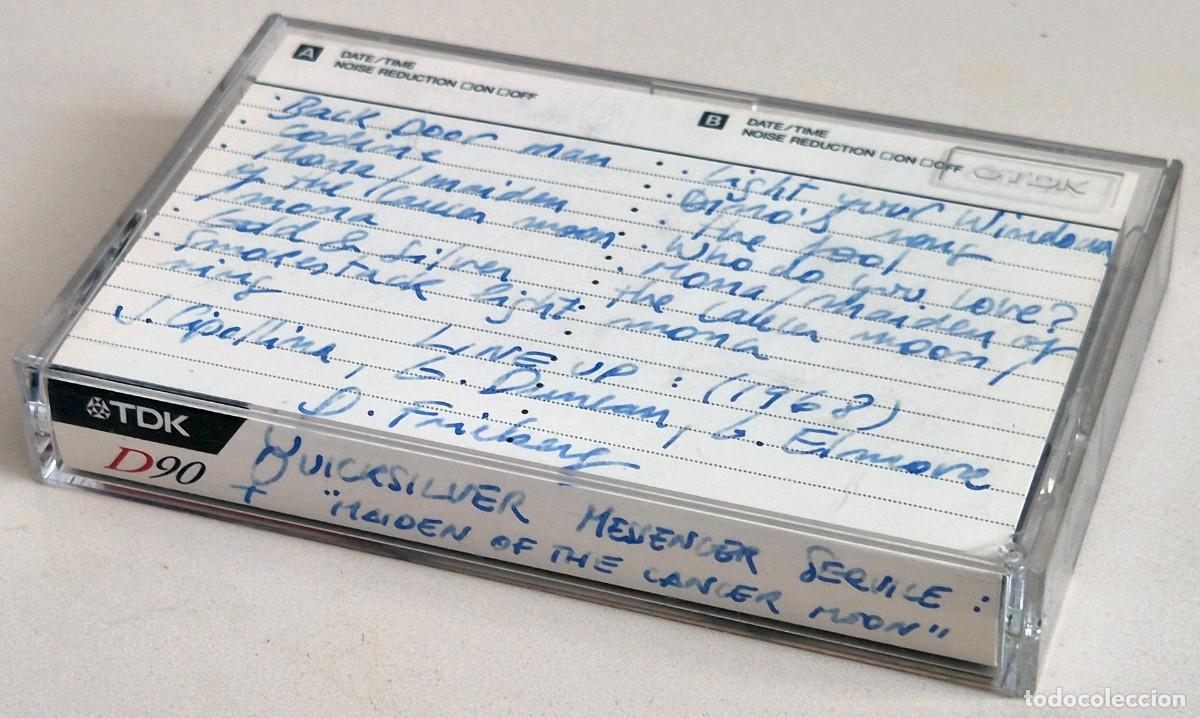 A DATE/TIME
NOISE REDUCTION □ON □OFF
· Back Door man
· Codeine
· Mona/maiden
of the Cancer moon
/mona
· Gold & Silver
· Smokestack light
ning
B DATE/TIME
NOISE REDUCTION □ON □OFF
TDK
· Light your Windows
· Dino's song
· The fool
· Who do you love?
· Mona/maiden of
the Cancer moon/
mona
LINE UP: (1968)
J. Cipollina, G. Duncan, G. Elmore
D. Freiberg
TDK
D90
QUICKSILVER MESSENGER SERVICE:
"MAIDEN OF THE CANCER MOON"
todocoleccion